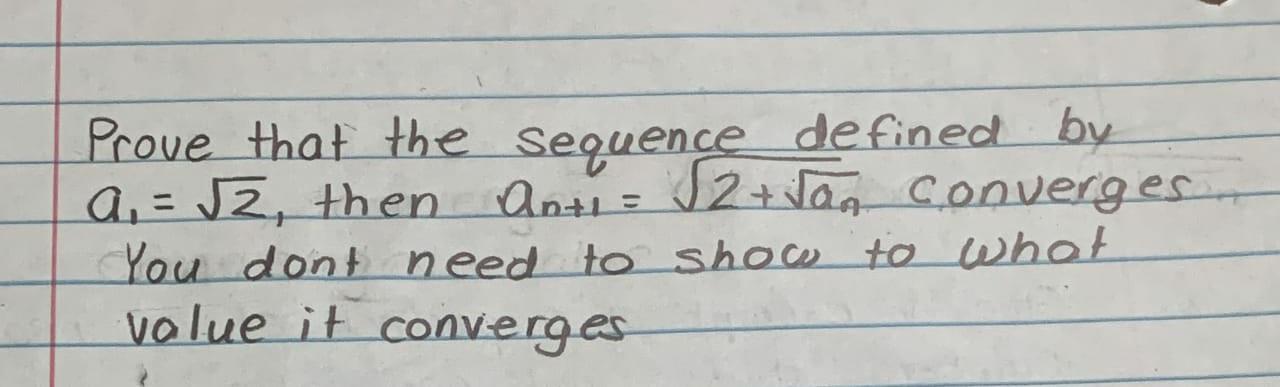 Prove that the sequence defined by
a₁ = √2, then aₙ₊₁ = √(2+√aₙ) converges
You dont need to show to what
value it converges